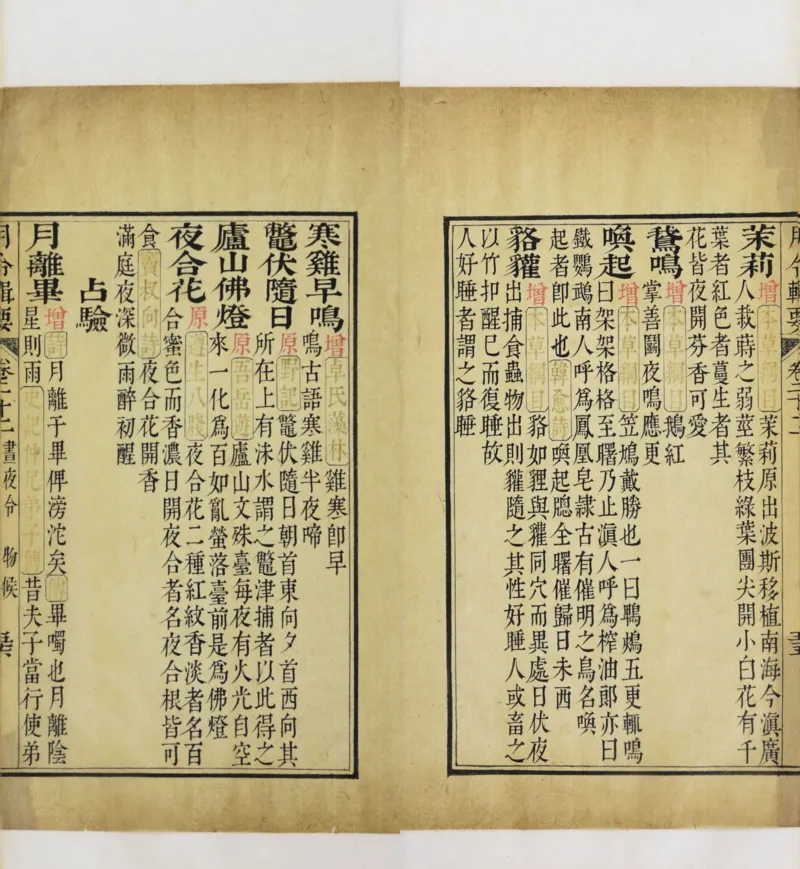 茉莉增本草綱目茉莉原出波斯移植南海今滇廣
人栽蒔之弱莖繁枝綠葉團尖開小白花有千
葉者紅色者蔓生者其
花皆夜開芬香可愛
鵞鳴增本草綱目鵝紅
掌善鬭夜鳴應更
喚起增本草綱目笠鳩戴勝也一曰鵯鵊五更輒鳴
曰架架格格至曙乃止滇人呼爲榨油郎亦曰
鐵鸚鵡南人呼爲鳳凰皂隸古有催明之鳥名喚
起者卽此也韓愈詩喚起牕全曙催歸日未西
貉貛增本草綱目貉如貍與貛同穴而異處日伏夜
出捕食蟲物出則貛隨之其性好睡人或畜之
以竹扣醒已而復睡故
人好睡者謂之貉睡
寒雞早鳴增卓氏藻林雞寒卽早
鳴古語寒雞半夜啼
鼈伏隨日原野記鼈伏隨日朝首東向夕首西向其
所在上有沫水謂之鼈津捕者以此得之
廬山佛燈原五岳遊廬山文殊臺每夜有火光自空
來一化爲百如亂螢落臺前是爲佛燈
夜合花原遵生八牋夜合花二種紅紋香淡者名百
合蜜色而香濃日開夜合者名夜合根皆可
食竇叔向詩夜合花開香
滿庭夜深微雨醉初醒
占驗
月離畢增詩月離于畢俾滂沱矣傳畢噣也月離陰
星則雨史記仲尼弟子傳昔夫子當行使弟
月令輯要 卷二十二 晝夜令 物候